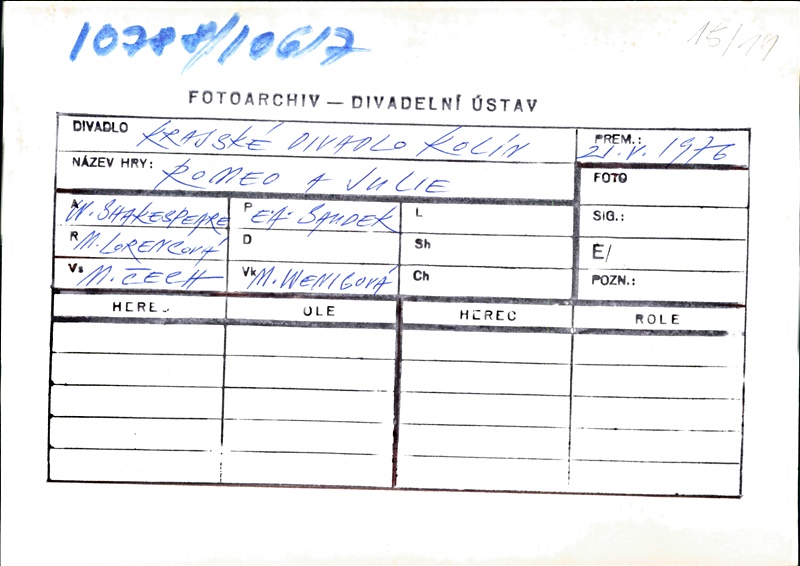 15/19
FOTOARCHIV — DIVADELNÍ ÚSTAV
DIVADLO KRAJSKÉ DIVADLO KOLÍN
PREM.: 21. V. 1976
NÁZEV HRY: ROMEO A JULIE
FOTO
A W. SHAKESPEARE P E.A. SAUDEK L
SIG.:
R M. LORENCOVÁ D Sh
E/
Vs M. ČECH Vk M. WENIGOVÁ Ch
POZN.:
HEREC OLE HEREC ROLE